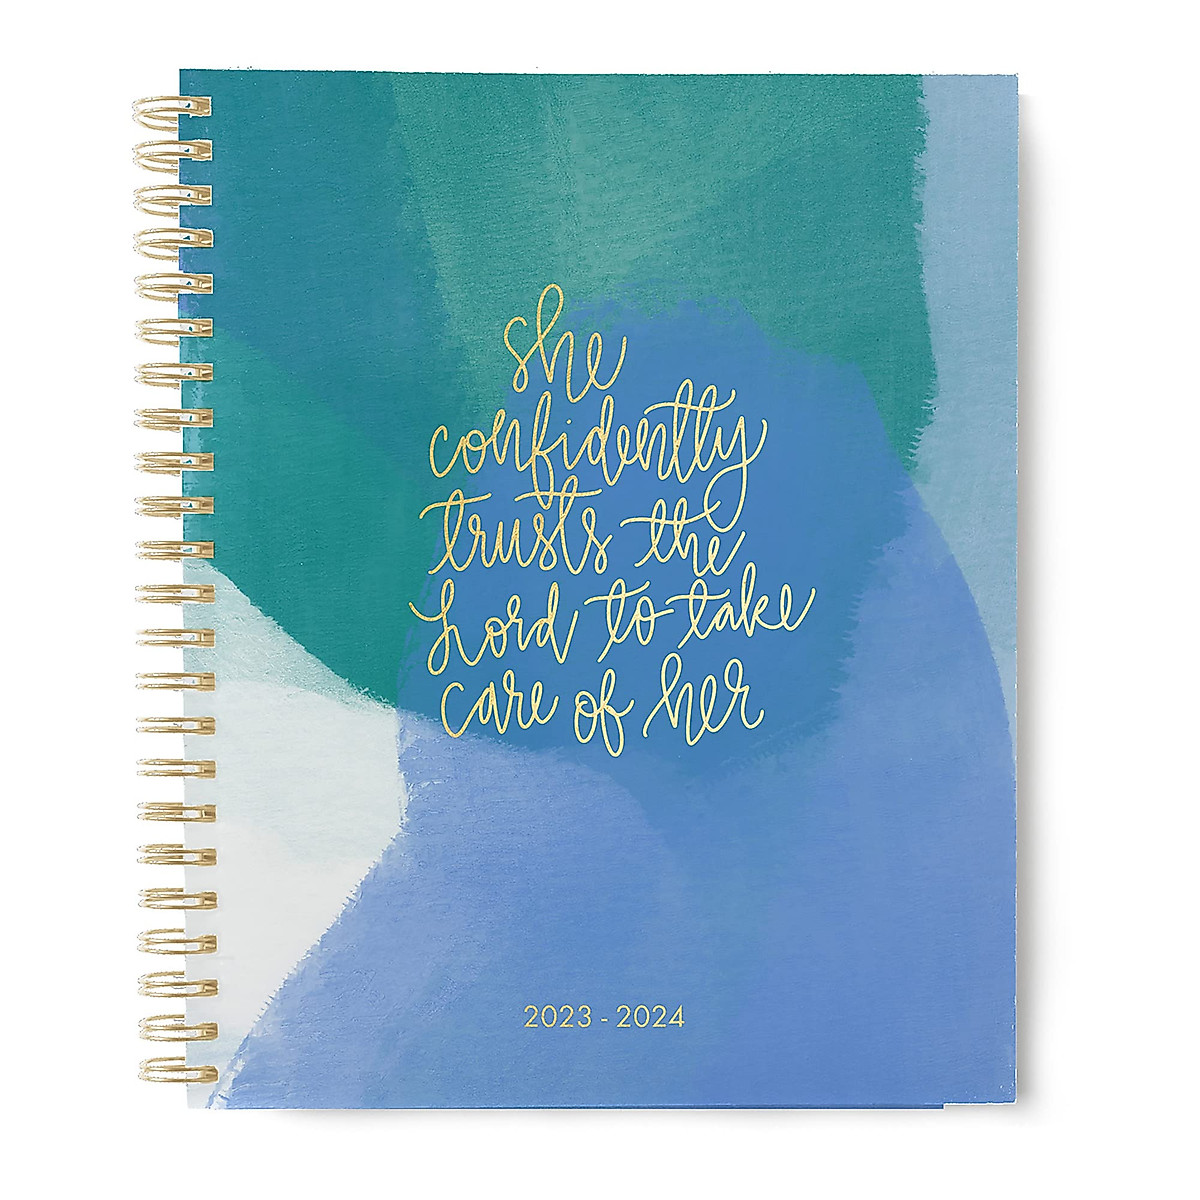 she
confidently
trusts the
Lord to take
care of her
2023 - 2024